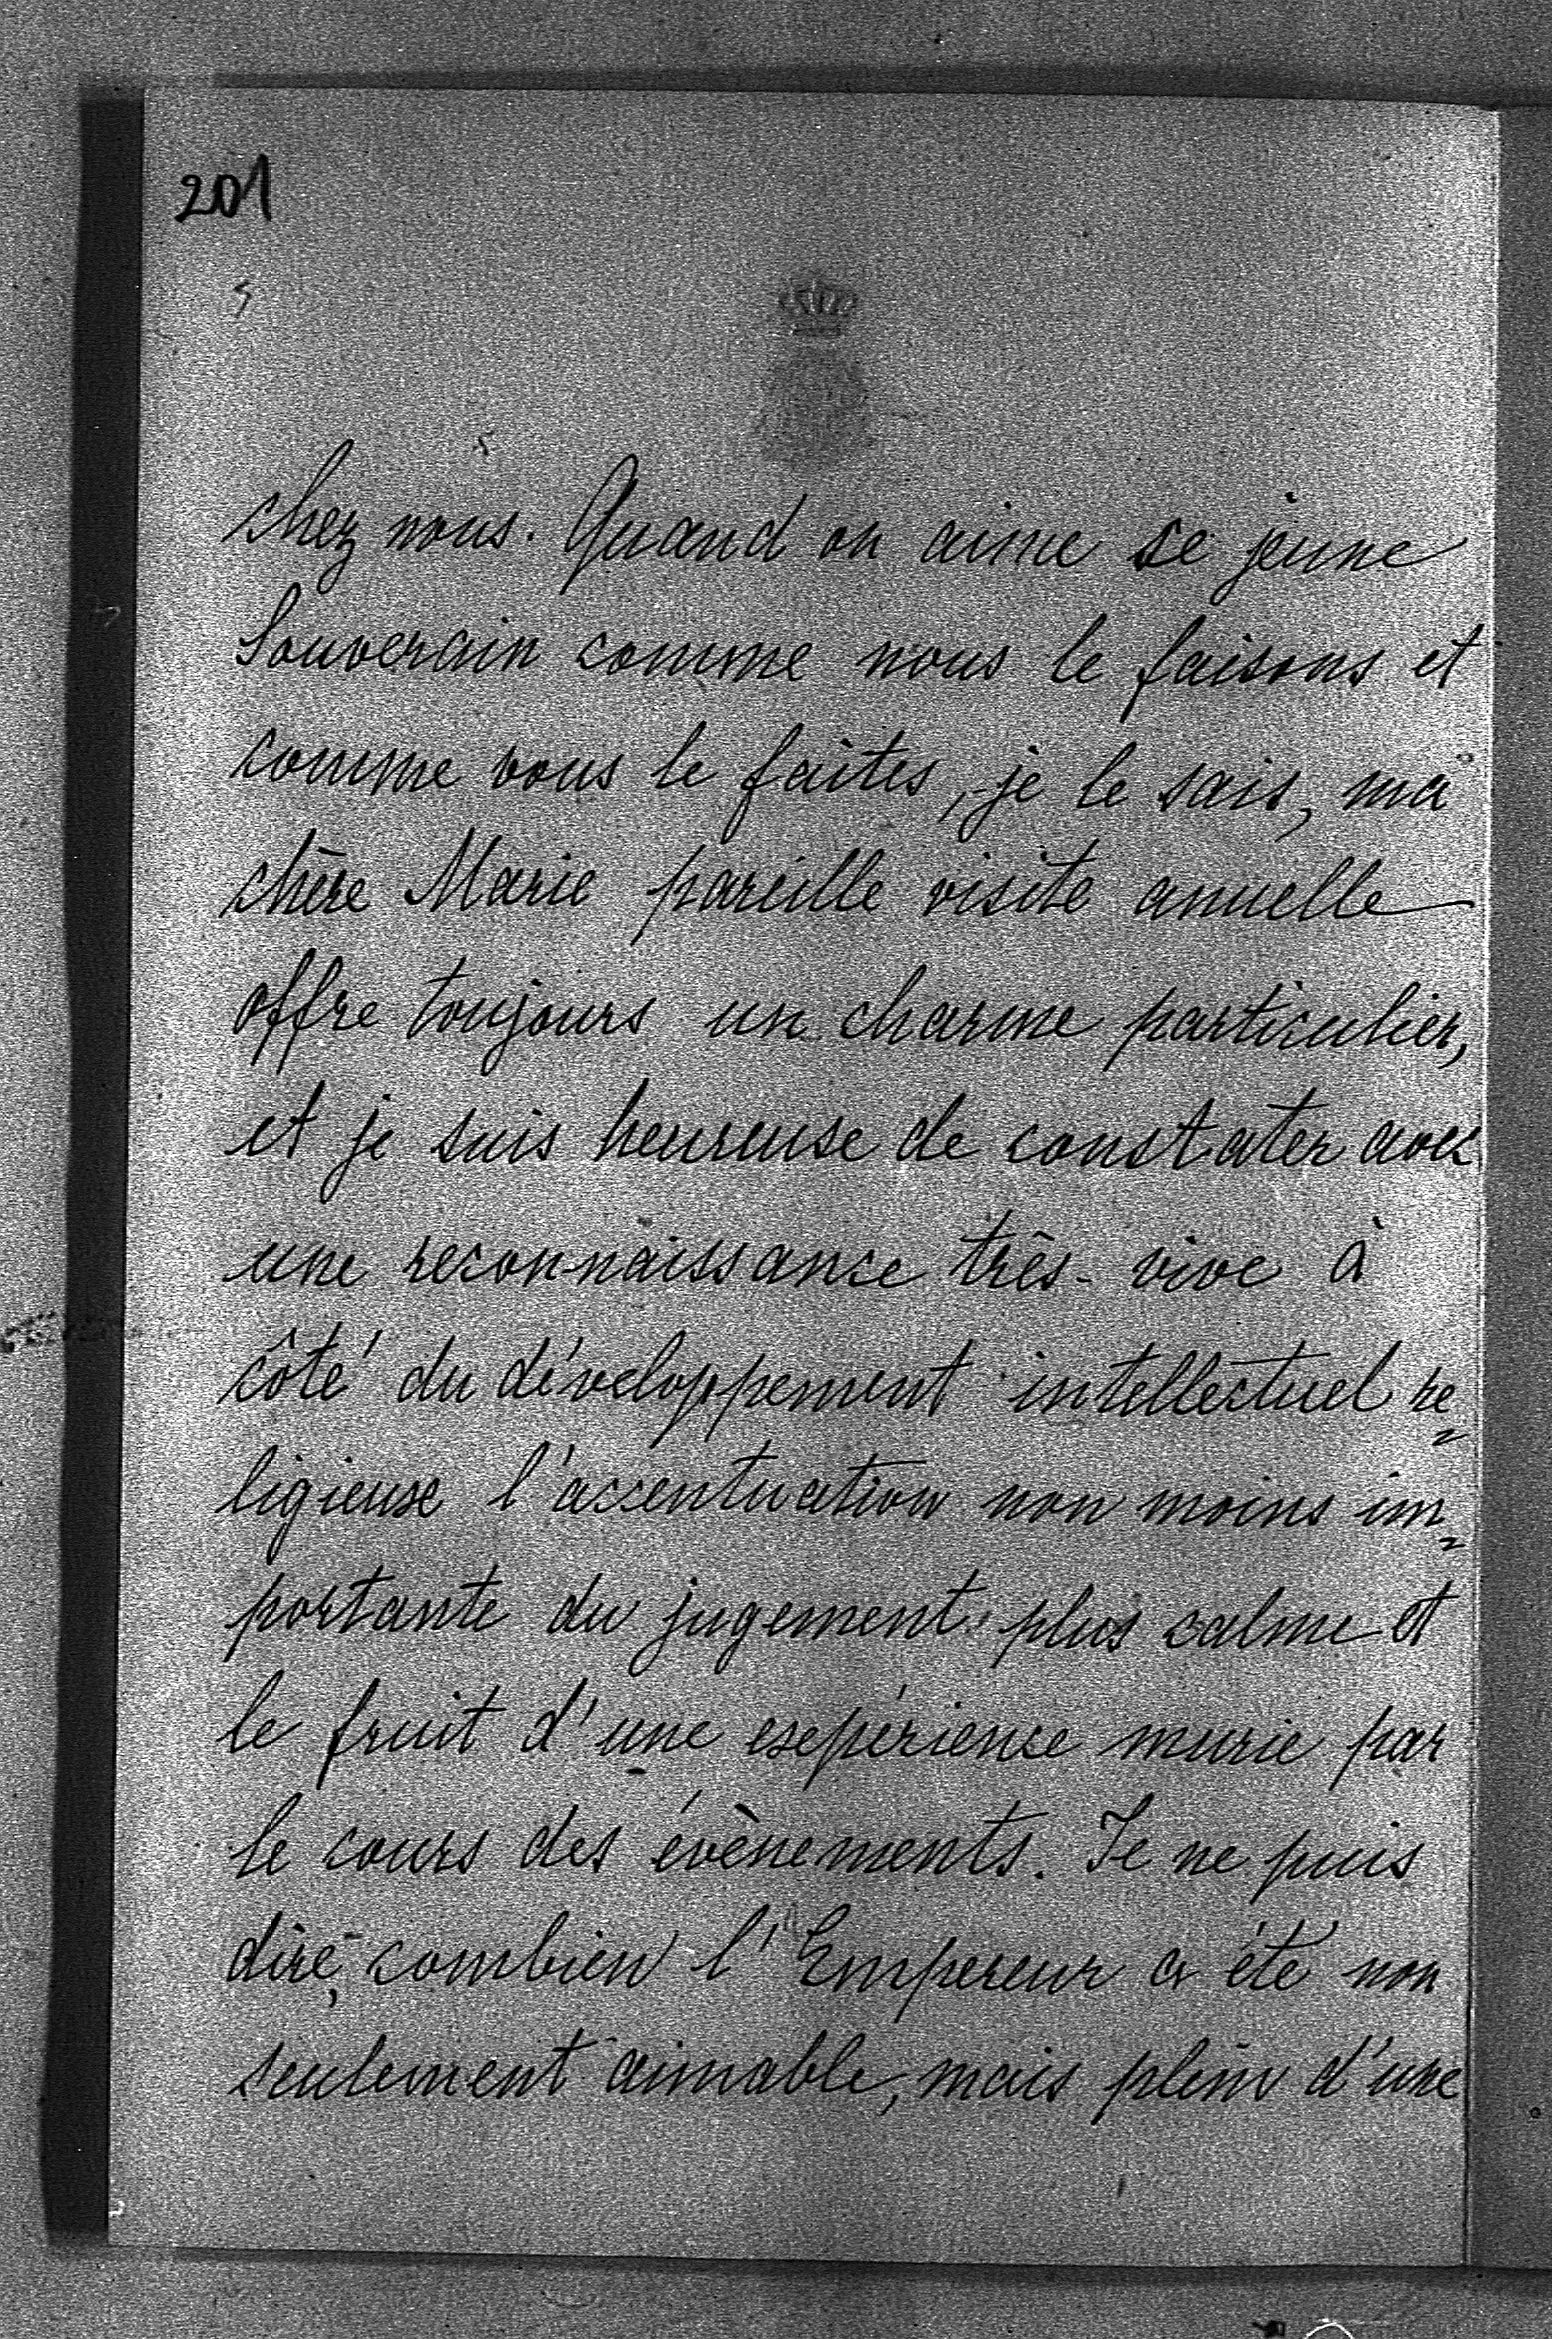 201
chez nous. Quand on aime ce jeune
Souverain comme nous le faisons et
comme vous le faites, je le sais, ma
chère Marie pareille visite annuelle
offre toujours un charme particulier,
et je suis heureuse de constater avec
une reconnaissance très-vive à
côté du développement intellectuel re=
ligieuse l'accentuation non moins im=
portante du jugement plus calme et
le fruit d'une expérience murie par
le cours des évènements. Je ne puis
dire, combien l'Empereur a été non
seulement aimable, mais plein d'une